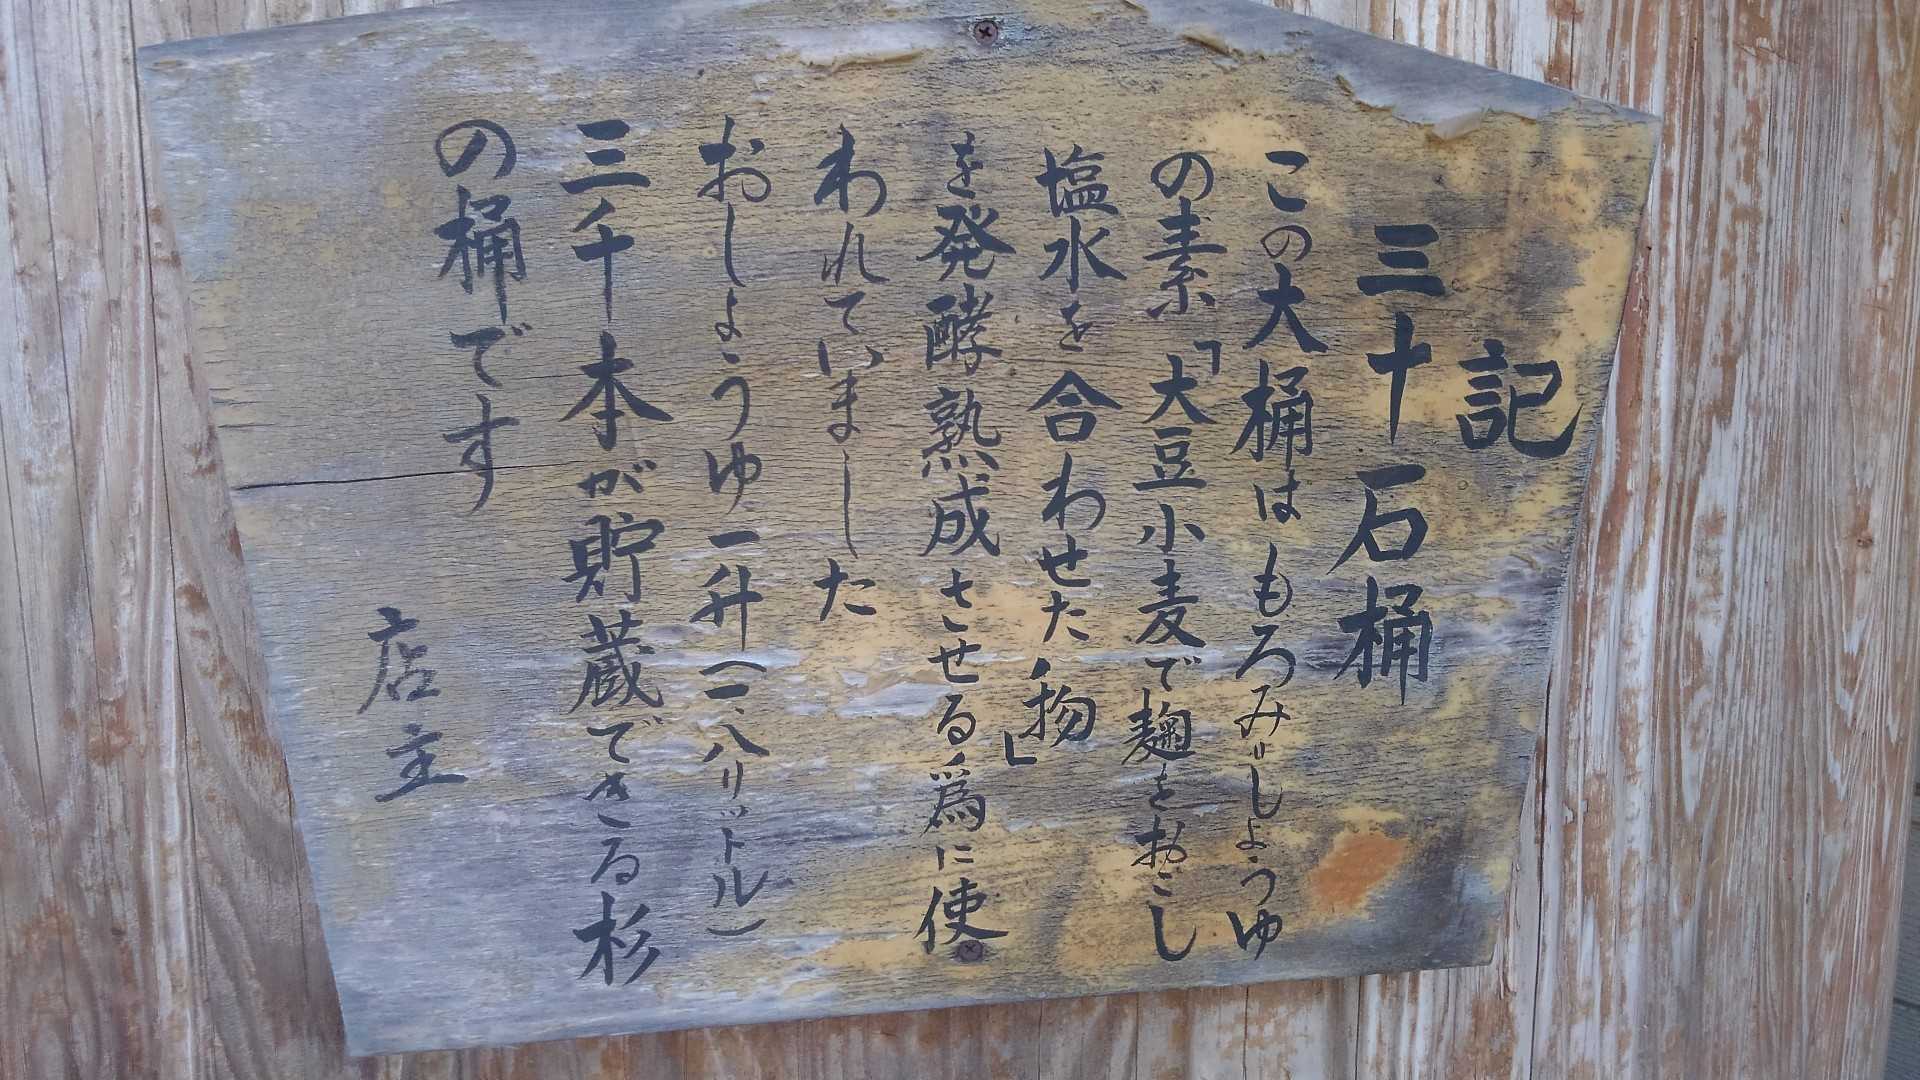 記
三十石桶
この大桶はもろみ〃しょうゆ
の素「大豆小麦で麹をおこし
塩水を合わせた物」
を発酵熟成させる為に使
われていました
おしょうゆ一升(一、八リットル)
三千本が貯蔵できる杉
の桶です
店主